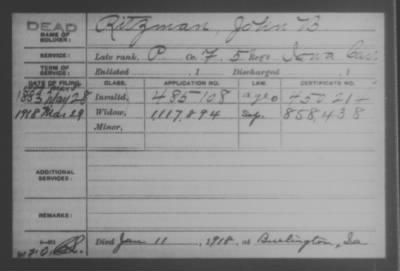 DEAD
NAME OF SOLDIER: Ritzman, John B
SERVICE: Late rank, P Co. F. 5 Reg't Iowa Cav
TERM OF SERVICE: Enlisted , 1 Discharged , 1
DATE OF FILING. CLASS. APPLICATION NO. LAW. CERTIFICATE NO.
1883 May 28 Invalid, 485108
1918 Mar 29 Widow, 1117.894 858.438
Minor,
ADDITIONAL SERVICES:
REMARKS:
Died Jan 11, 1918, at Burlington, Ia